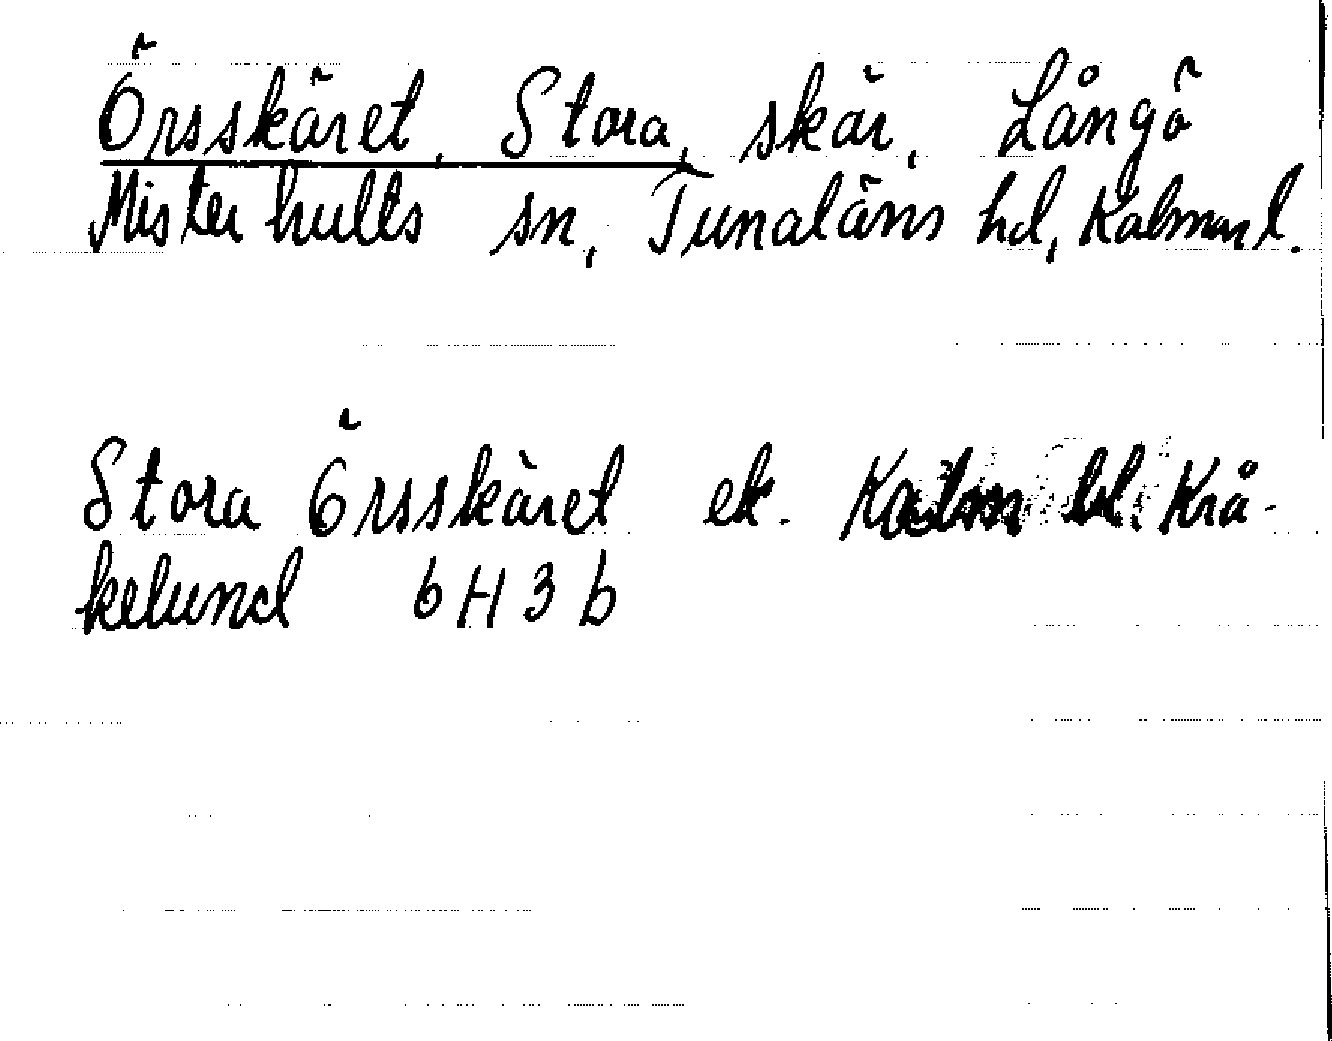 Örsskäret, Stora, skär, Långö
Misterhults sn, Tunaläns hd, Kalmar l.
Stora Örsskäret ek. bl. Krå-
kelund 6H3b